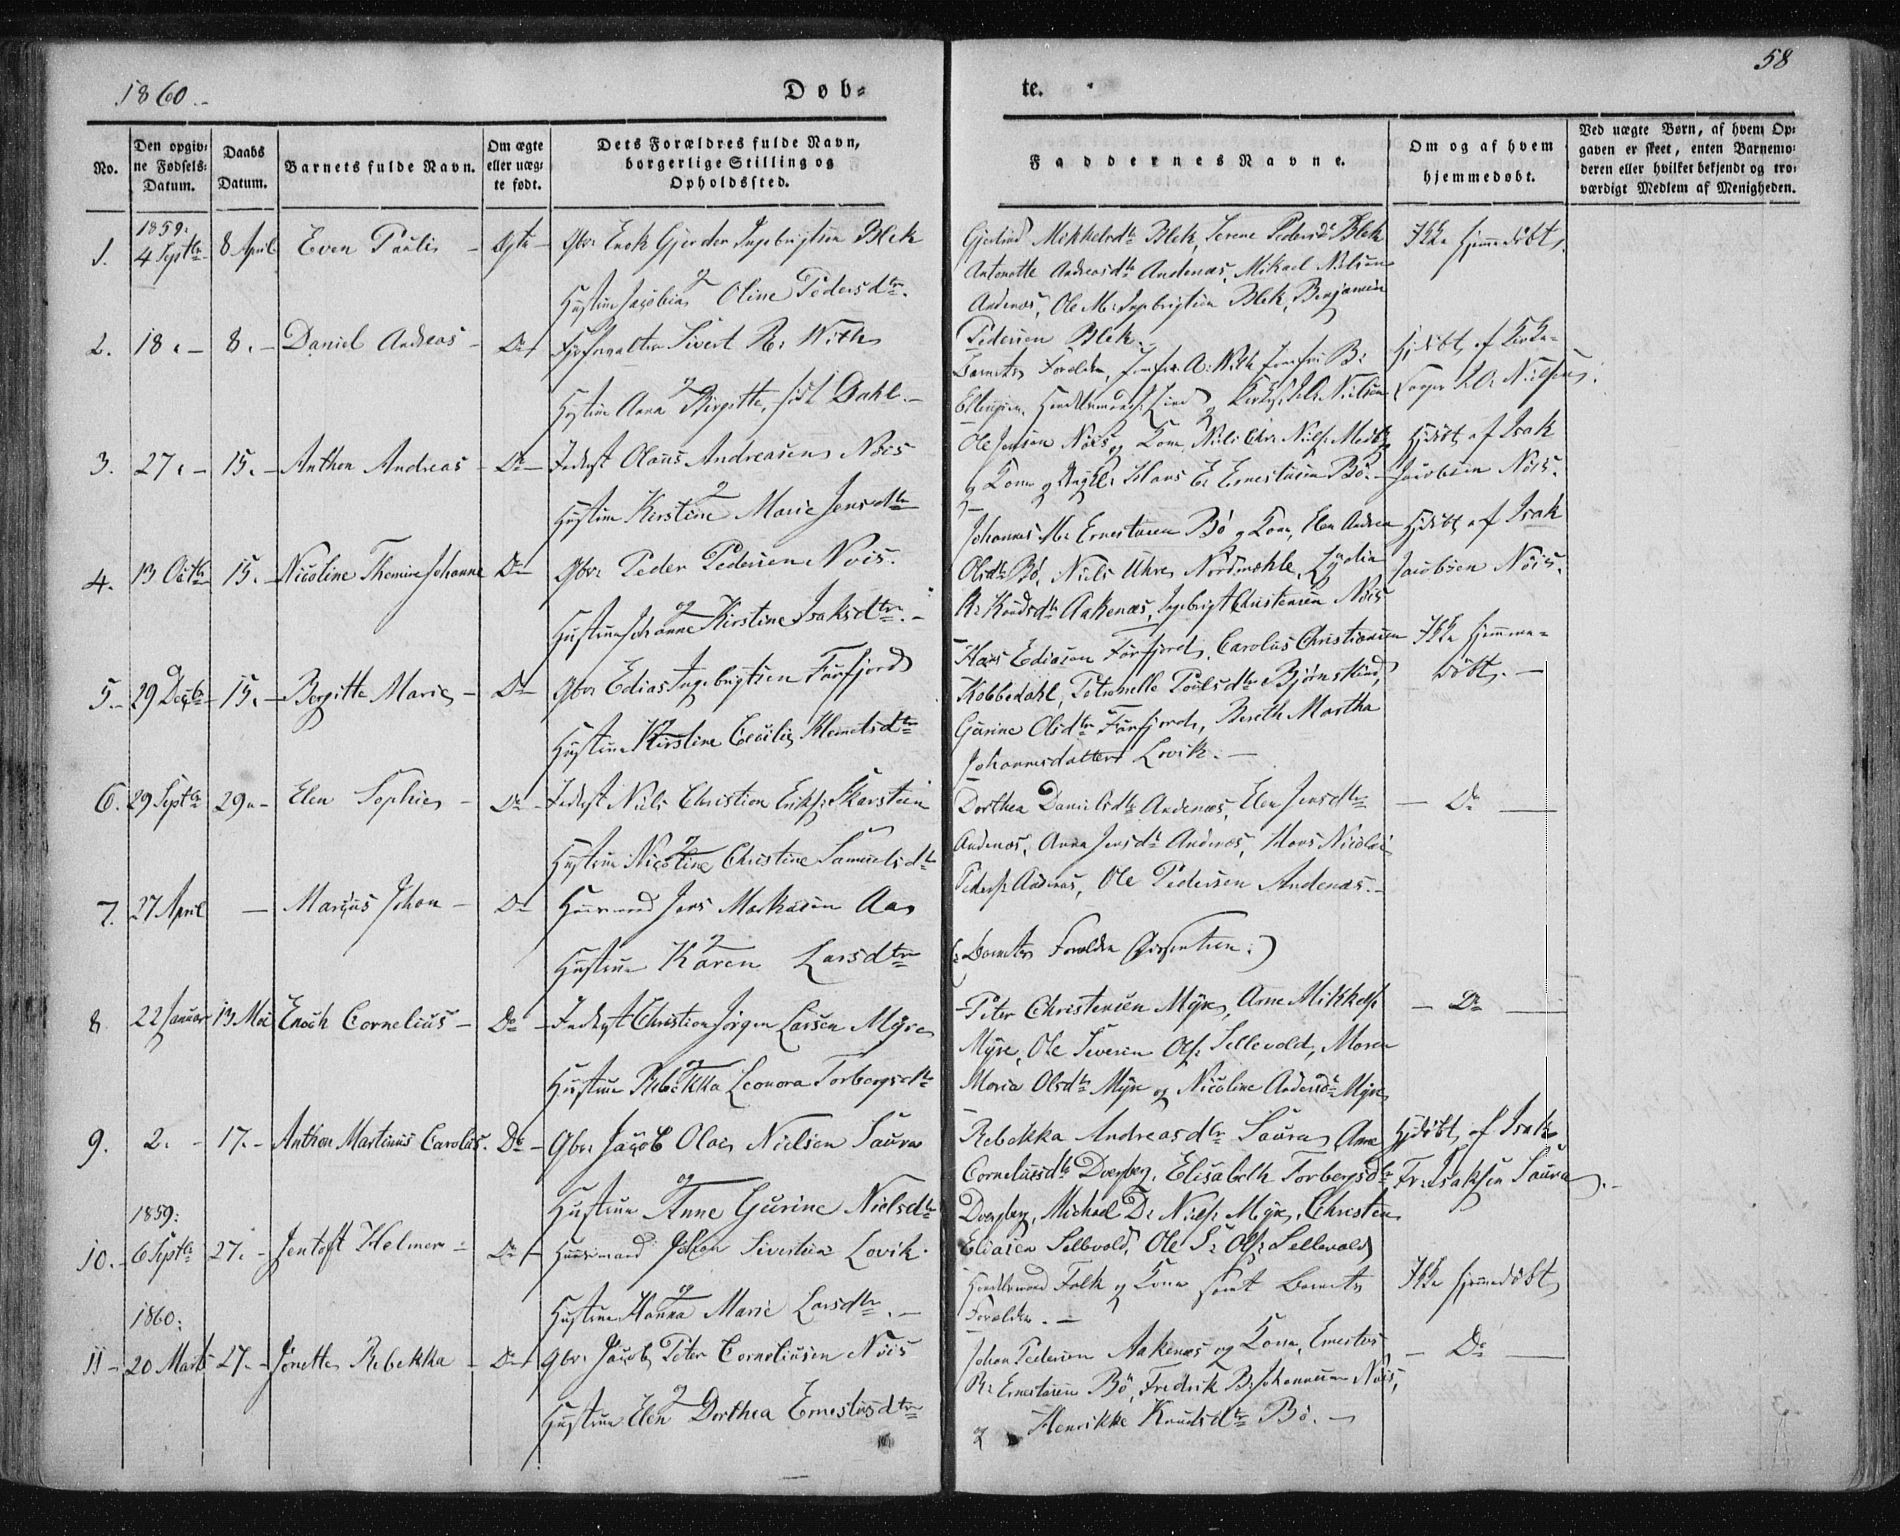 1860.
Døb-
te.
58
No.
Den opgiv-
ne Fødsels-
Datum.
Daabs
Datum.
Barnets fulde Navn.
Om ægte
eller uæg-
te født.
Dets Forældres fulde Navn,
borgerlige Stilling og
Opholdssted.
Faddernes Navne.
Om og af hvem
hjemmedøbt.
Ved uægte Børn, af hvem Op-
gaven er skeet, enten Barnemo-
deren eller hvilket bekjendt og tro-
værdigt Medlem af Menigheden.
1859:
1. 4 Septbr 8 April Even Paulis Ægte Gbr: Enok Gjerder Ingebrigtsen Blek
og
Hustru Jacobine Oline Pedersdtr.
Mikkelsdtr Blek, Serene Pedersdr Blek
Antonette Andreasdtr Andenæs, Mikael Nielsen
Andenæs, Ole M: Ingebrigtsen Blek, Benjamin
Pedersen Blek.
Ikke hjemmedøbt.
2. 18. 8. Daniel Andreas Do Sivert R: With
og
Hustru Anna Birgitte, født Dahl.
Barnets Forældre, Jomfru A: With, Jomfru B:
Ellingsen, Lind og Nielsen
Hjdøbt af Kirke-
sanger Nielsen.
3. 27. 15. Anthon Andreas Do Inderst Olaus Andreasen Nöis
og
Hustru Kirstine Marie Jensdtr
Ole Jensen Nöis og Kone, Niels Chr: Niels: Medby
og Kone og Ungkl: Hans E: Ernestusen Bö.
Hjdøbt af Isak
Jacobsen Nöis.
4. 13 Octbr 15. Nicoline Themine Johanne Do Gbr: Peder Pedersen Nöis.
og
Hustru Johanne Kirstine Isaksdtr.
Johannes M: Ernestusen Bö og Kone, Elen Andrea
Olsdtr Bö, Niels Uhre Nordmæhle, Lydia
R: Knudsdtr Aakenæs, Ingebrigt Christensen Nöis
Hjdøbt af Isak
Jacobsen Nöis.
5. 29 Decbr 15. Bergitte Marie Do Gbr: Edias Ingebrigtsen Forfjord
og
Hustru Kirstine Cecilie Klemetsdtr
Hans Ediasen Forfjord, Carolus Christiansen
Kobbedahl, Petronelle Poulsdtr Bjørnskind,
Gurine Olsdtr Forfjord, Bereth Martha
Johannesdatter Lovik.
Ikke hjemme-
døbt.
6. 29 Septbr 29. Elen Sophie Do Inderst Niels Christian Eriks: Skarstein
og
Hustru Nicoline Christine Samuelsdtr
Dorthea Danielsdtr Andenæs, Elen Jensdtr
Andenæs, Anna Jensdtr Andenæs, Hans Nicolai
Peders: Andenæs, Ole Pedersen Andenæs.
Do
7. 27 April Marcus Johan Do Huusmand Jens Markusen Aas
og
Hustru Karen Larsdtr
(: Barnets Forældre Dissentere :)
8 22 Januar 13 Mai Enoch Cornelius Do Inderst Christian Jörgen Larsen Myre
og
Hustru Rebekka Leonora Torbergsdtr
Peter Christensen Myre, Arne Mikkels:
Myre, Ole Severin Ols: Sellevold, Maren
Maria Olsdtr Myre og Nicoline Andersdtr Myre
Do
9. 2. 17. Anthon Martinus Carolus. Do Gbr: Jacob Olai Nielsen Saura
og
Hustru Anne Gurine Nielsdtr
Rebekka Andreasdtr Saura, Anne
Corneliusdtr Dverberg, Elisabeth Torbergsdtr
Dverberg, Michael D: Niels: Myre, Christen
Eliasen Sellevold, Ole S: Ols: Sellevold
Hjdøbt af Isak
Fr: Isaksen Saura.
1859:
10. 6 Septbr 27. Jentoft Helmer Do Huusmand Johan Sivertsen Lovik.
og
Hustru Hanna Marie Larsdtr.
Handelsmand Falk og Kone samt Barnets
Forældre.
Ikke hjemmedøbt
1860:
11 20 Marts 27. Jönette Rebekka Do Gbr: Jacob Peter Corneliusen Nöis
og
Hustru Elen Dorthea Ernestusdtr
Johan Pedersen Aakenæs og Kone, Ernestus
R: Ernestusen Bö, Fredrik B: Johannesen Nöis,
og Henrikke Knudsdtr Bö.
Do